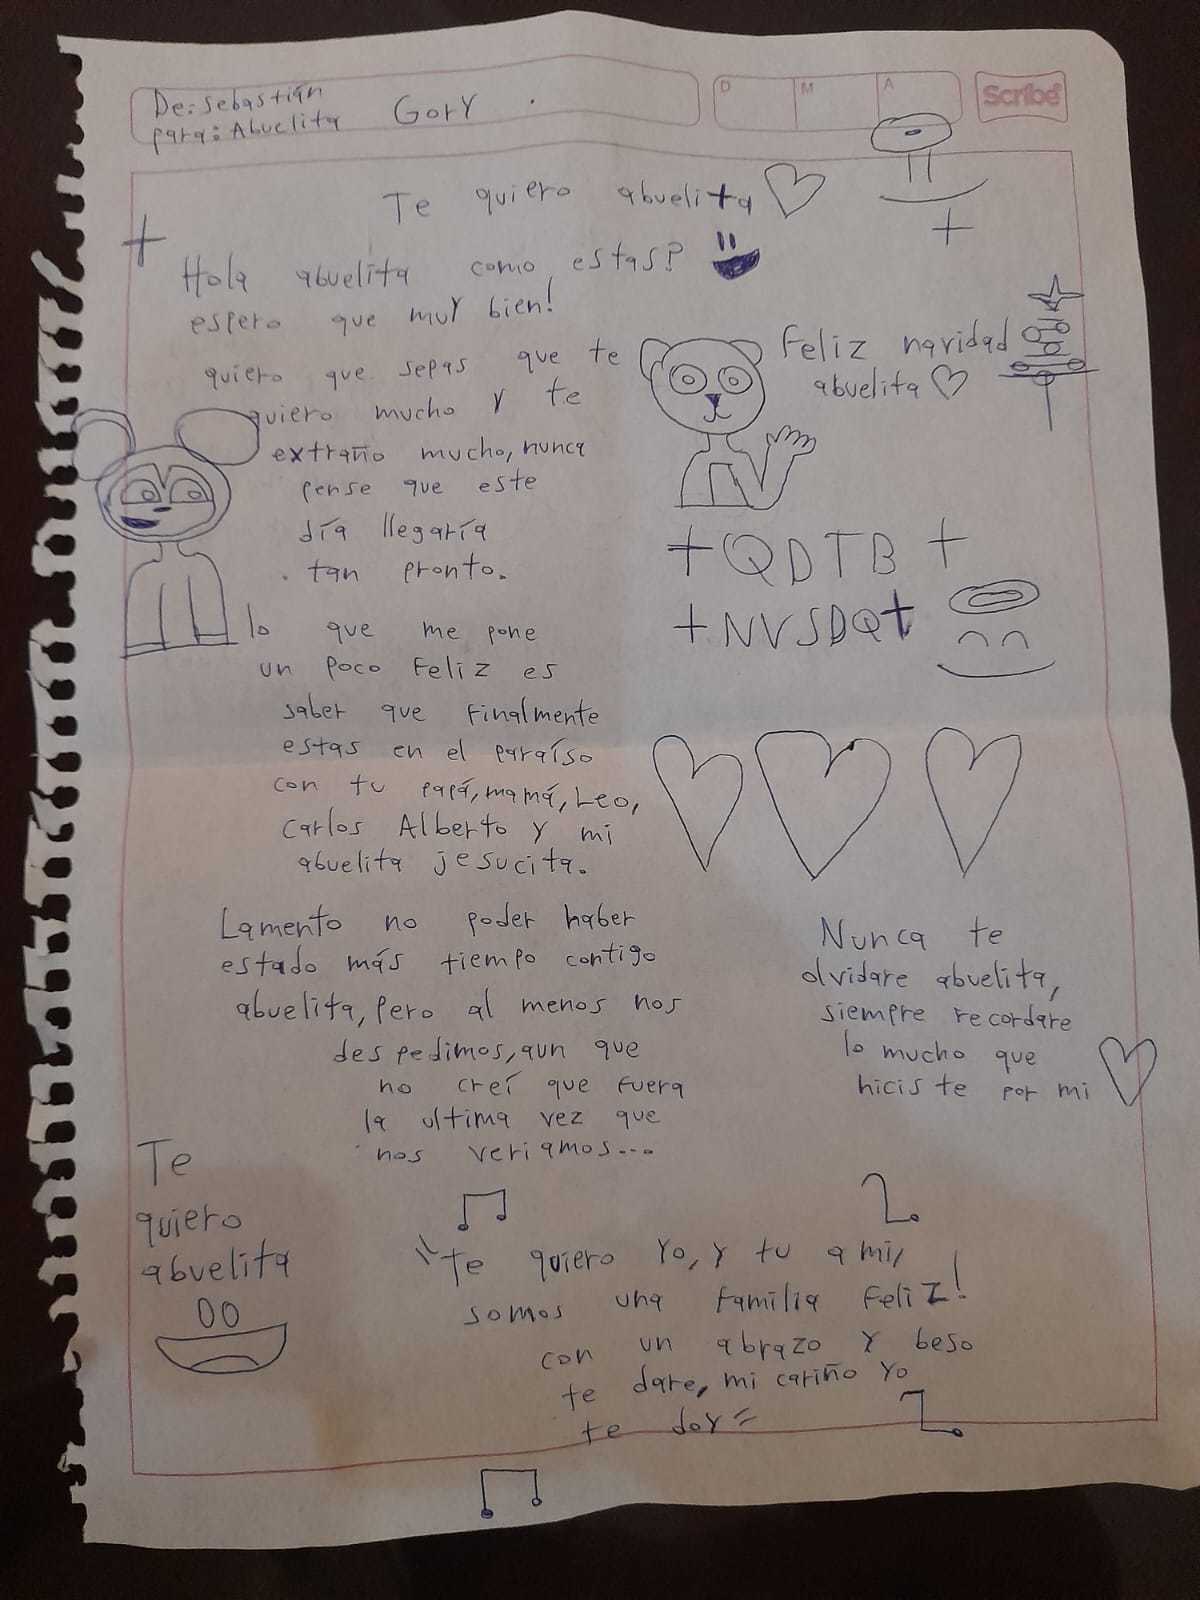 De: Sebastián
para: Abuelita Gory
D M A
Scribe
Te quiero abuelita
Hola abuelita como estas?
espero que muy bien!
quiero que sepas que te
quiero mucho y te
extraño mucho, nunca
pense que este
día llegaría
tan pronto.
lo que me pone
un poco feliz es
saber que finalmente
estas en el paraíso
con tu papá, mamá, Leo,
Carlos Alberto y mi
abuelita jesucita.
Lamento no poder haber
estado más tiempo contigo
abuelita, pero al menos nos
despedimos, aun que
no creí que fuera
la ultima vez que
nos veriamos...
Feliz navidad
abuelita
+QDTB+
+NVSDQ+
Nunca te
olvidare abuelita,
siempre recordare
lo mucho que
hiciste por mi
Te
quiero
abuelita
"Te quiero yo, y tu a mi,
somos una familia feliz!
con un abrazo y beso
te dare, mi cariño yo
te doy"